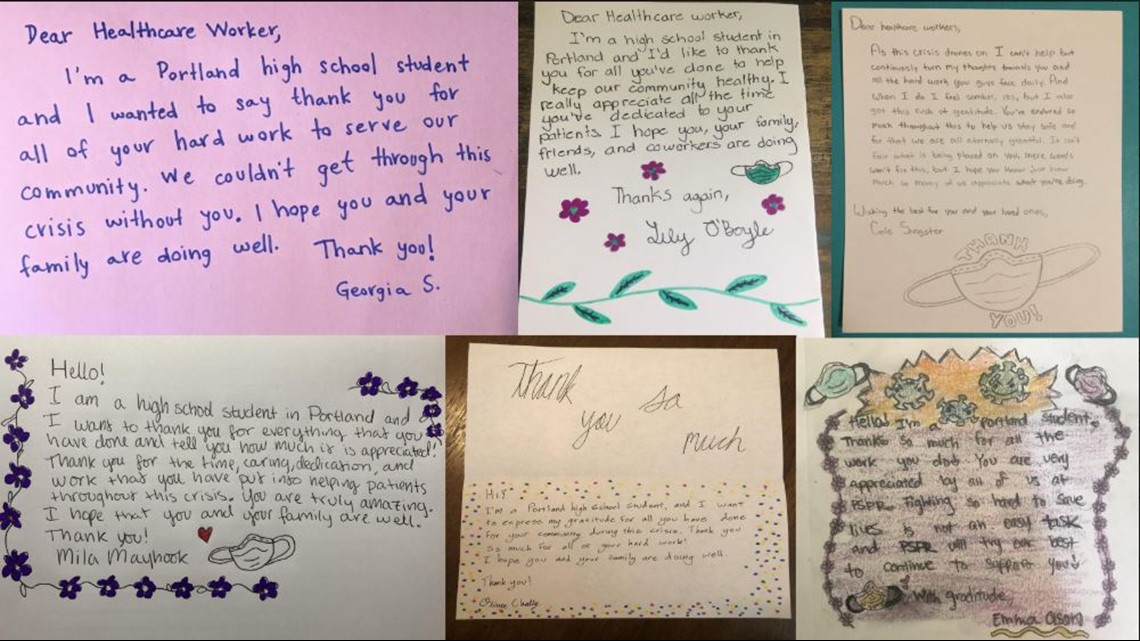 Dear Healthcare Worker,
I'm a Portland high school student
and I wanted to say thank you for
all of your hard work to serve our
community. We couldn't get through this
crisis without you. I hope you and your
family are doing well. Thank you!
Georgia S.
Dear Healthcare worker,
I'm a high school student in
Portland and I'd like to thank
you for all you've done to help
keep our community healthy. I
really appreciate all the time
you've dedicated to your
patients. I hope you, your family,
friends, and coworkers are doing
well.
Thanks again,
Lily O'Boyle
Dear healthcare workers,
As this crisis drones on I can't help but
continously turn my thoughts towards you and
all the hard work you guys face daily. And
when I do I feel somber, yes, but I also
get this rush of gratitude. You've endured so
much throughout this to help us stay safe and
for that we are all eternally grateful. It isn't
fair what is being placed on you, mere words
won't fix this, but I hope you know just how
much so many of us appreciate what you're doing.
Wishing the best for you and your loved ones,
Cole Sangster
THANK
YOU!
Hello!
I am a high school student in Portland and
I want to thank you for everything that you
have done and tell you how much it is appreciated!
Thank you for the time, caring, dedication, and
work that you have put into helping patients
throughout this crisis. You are truly amazing.
I hope that you and your family are well.
Thank you!
Mila Maybook
Thank
you so
much
Hi!
I'm a Portland high school student, and I want
to express my gratitude for all you have done
for your community during this crisis. Thank you
so much for all of your hard work!
I hope you and your family are doing well.
Thank you!
Hello! I'm a Portland student.
Thanks so much for all the
work you do! You are very
appreciated by all of us at
PSPR. Fighting so hard to save
lives is not an easy task
and PSPR will try our best
to continue to support you!
With gratitude,
Emma Olson